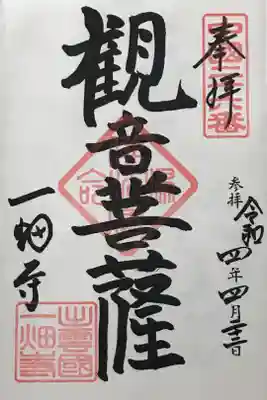 奉拝
参拝 令和四年四月
観音菩薩
一畑寺
出雲國
一畑寺